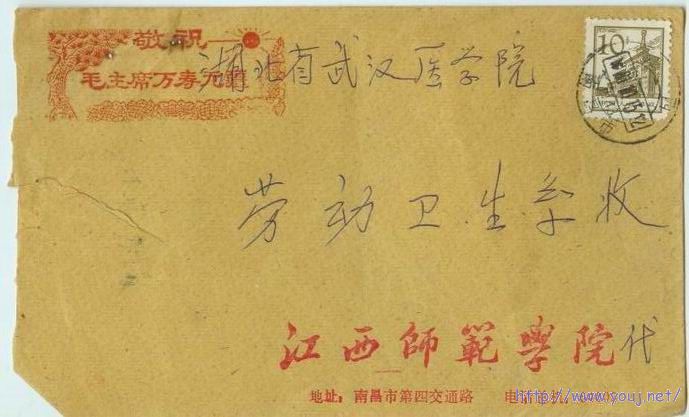 敬祝
毛主席万寿无疆
湖北省武汉医学院
10
劳动卫生系收
江西師範學院代
地址：南昌市第四交通路 电
http://www.youj.net/